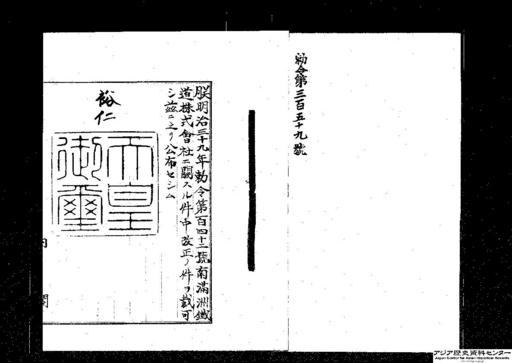 勅令第三百五十九號
朕明治三十九年勅令第百四十二號南滿洲鐵
道株式會社ニ關スル件中改正ノ件ヲ裁可
シ茲ニ之ヲ公布セシム
裕仁
天皇
御璽
内閣
アジア歴史資料センター
Japan Center for Asian Historical Records